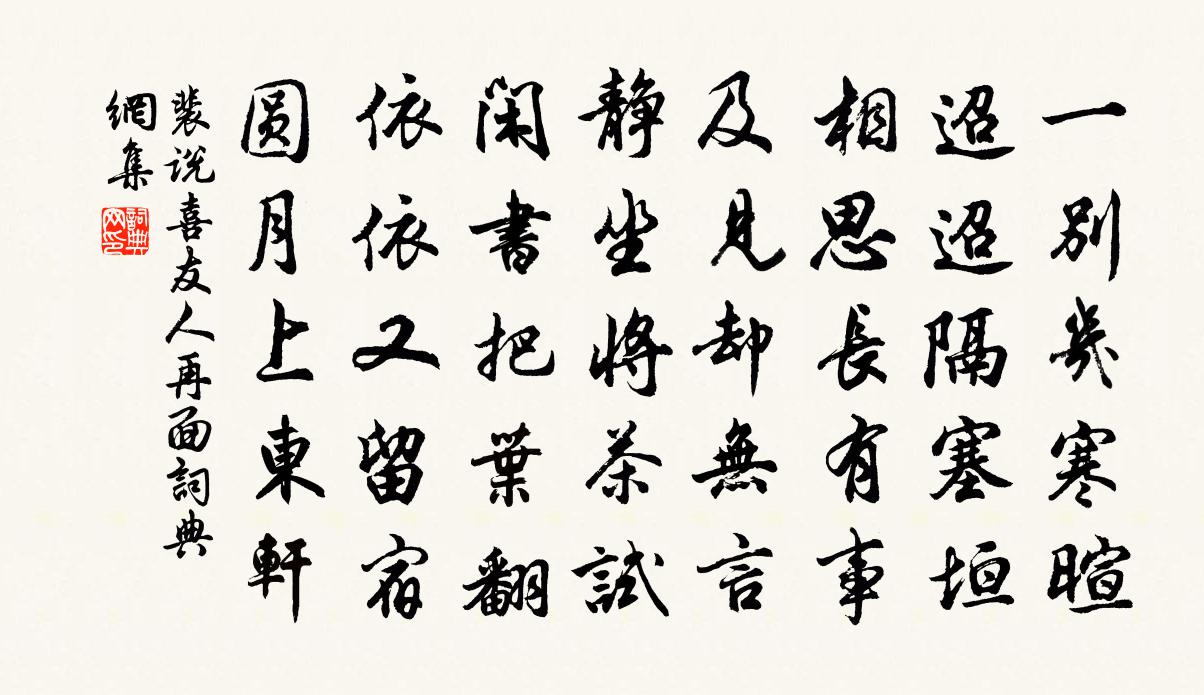 一別幾寒暄
迢迢隔塞垣
相思長有事
及見却無言
靜坐將茶試
閑書把葉翻
依依又留宿
圆月上東軒
裴说喜友人再面詞典
網集
詞典
网印